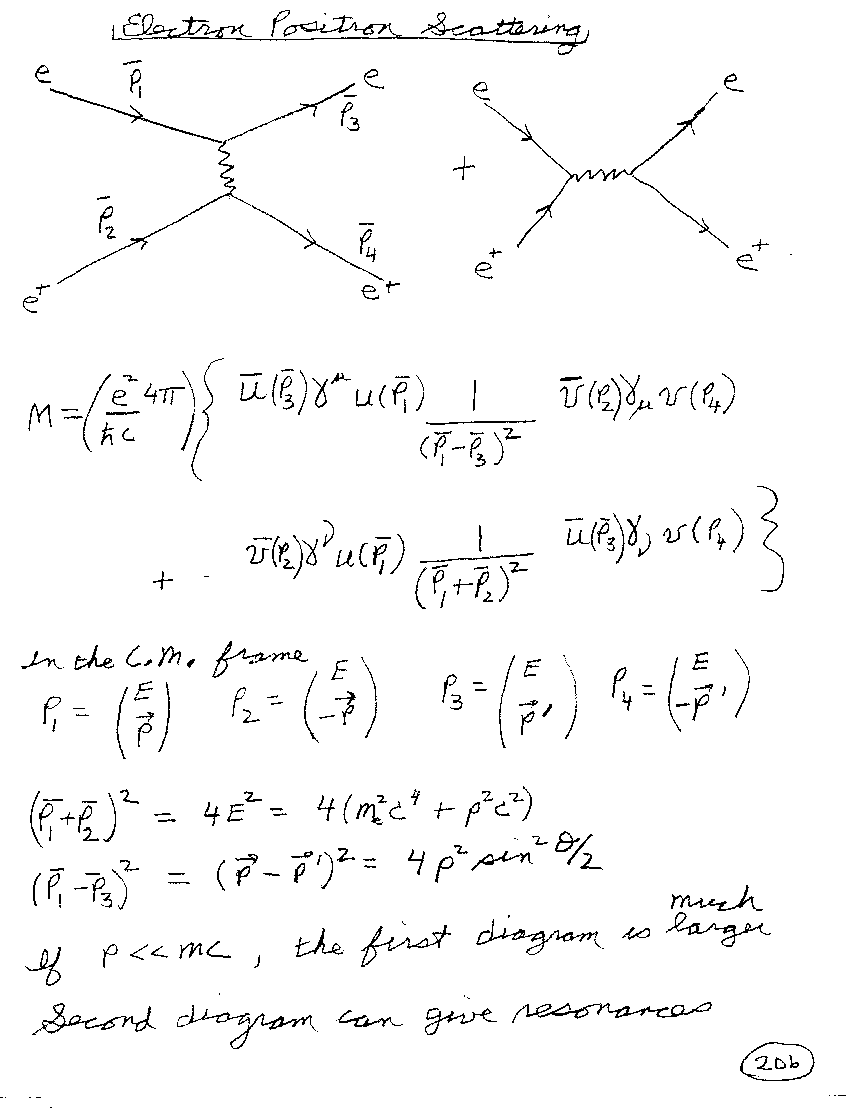 Electron Positron Scattering
e p̄₁ e p̄₃ e e
+
p̄₂ p̄₄
e⁺ e⁺ e⁺ e⁺
M = (e²/ħc 4π) { ū(p̄₃)γ^μ u(p̄₁) 1/(p̄₁-p̄₃)² v̄(p₂)γ_μ v(p₄)
+ v̄(p₂)γ^ν u(p̄₁) 1/(p̄₁+p̄₂)² ū(p̄₃)γ_ν v(p₄) }
In the C.M. frame
p₁ = (E p⃗) p₂ = (E -p⃗) p₃ = (E p⃗') p₄ = (E -p⃗')
(p̄₁+p̄₂)² = 4E² = 4(mₑ²c⁴ + p²c²)
(p̄₁-p̄₃)² = (p⃗ - p⃗')² = 4p² sin² θ/2
If p << mc, the first diagram is much larger
Second diagram can give resonances
20b